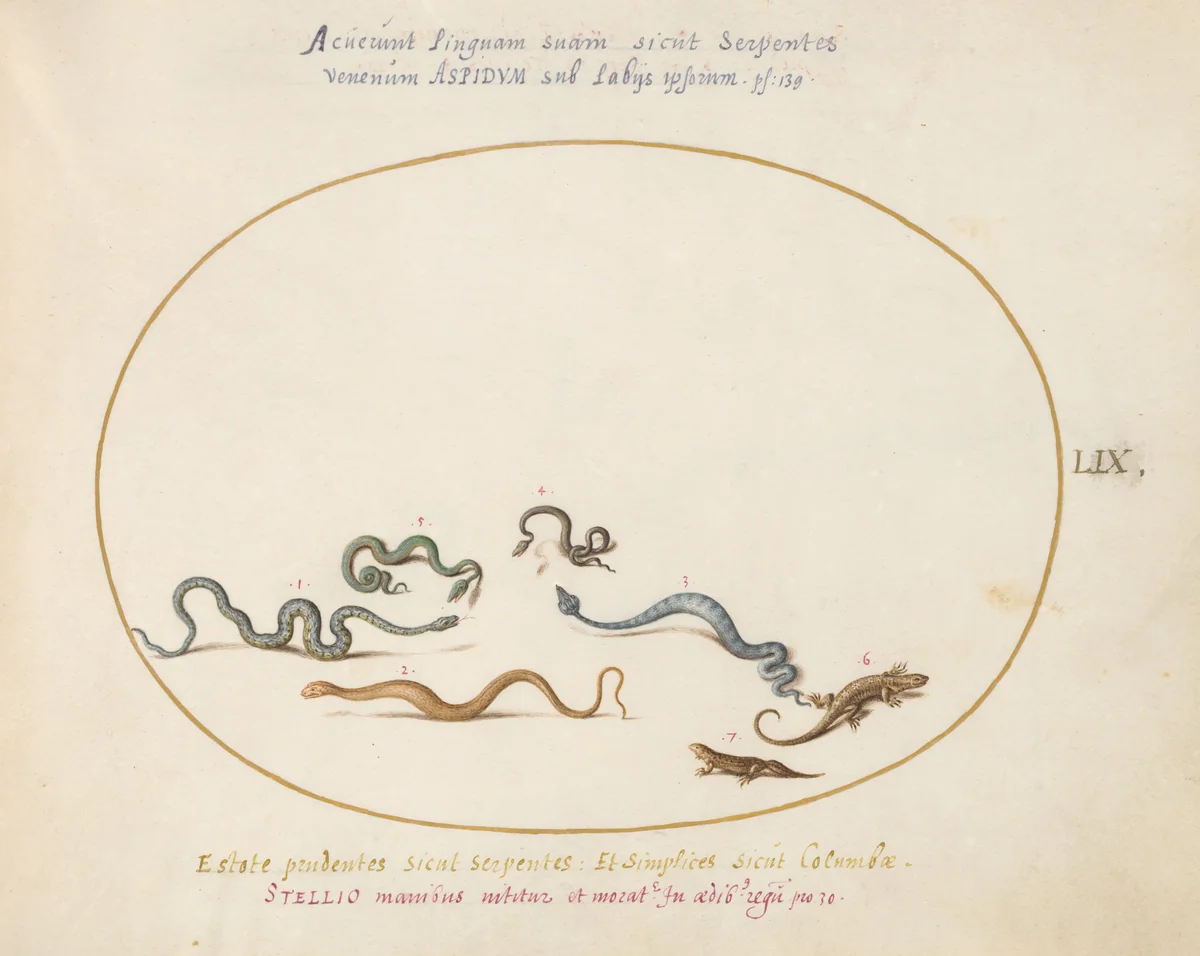 Acuerunt linguam suam sicut Serpentes
venenum ASPIDVM sub labijs ipsorum. ps: 139.
LIX.
.4.
.5.
.1.
3
.2.
.6.
.7.
Estote prudentes sicut serpentes: Et Simplices sicut Columbæ.
STELLIO manibus nititur et morat In ædib regū pro 30.